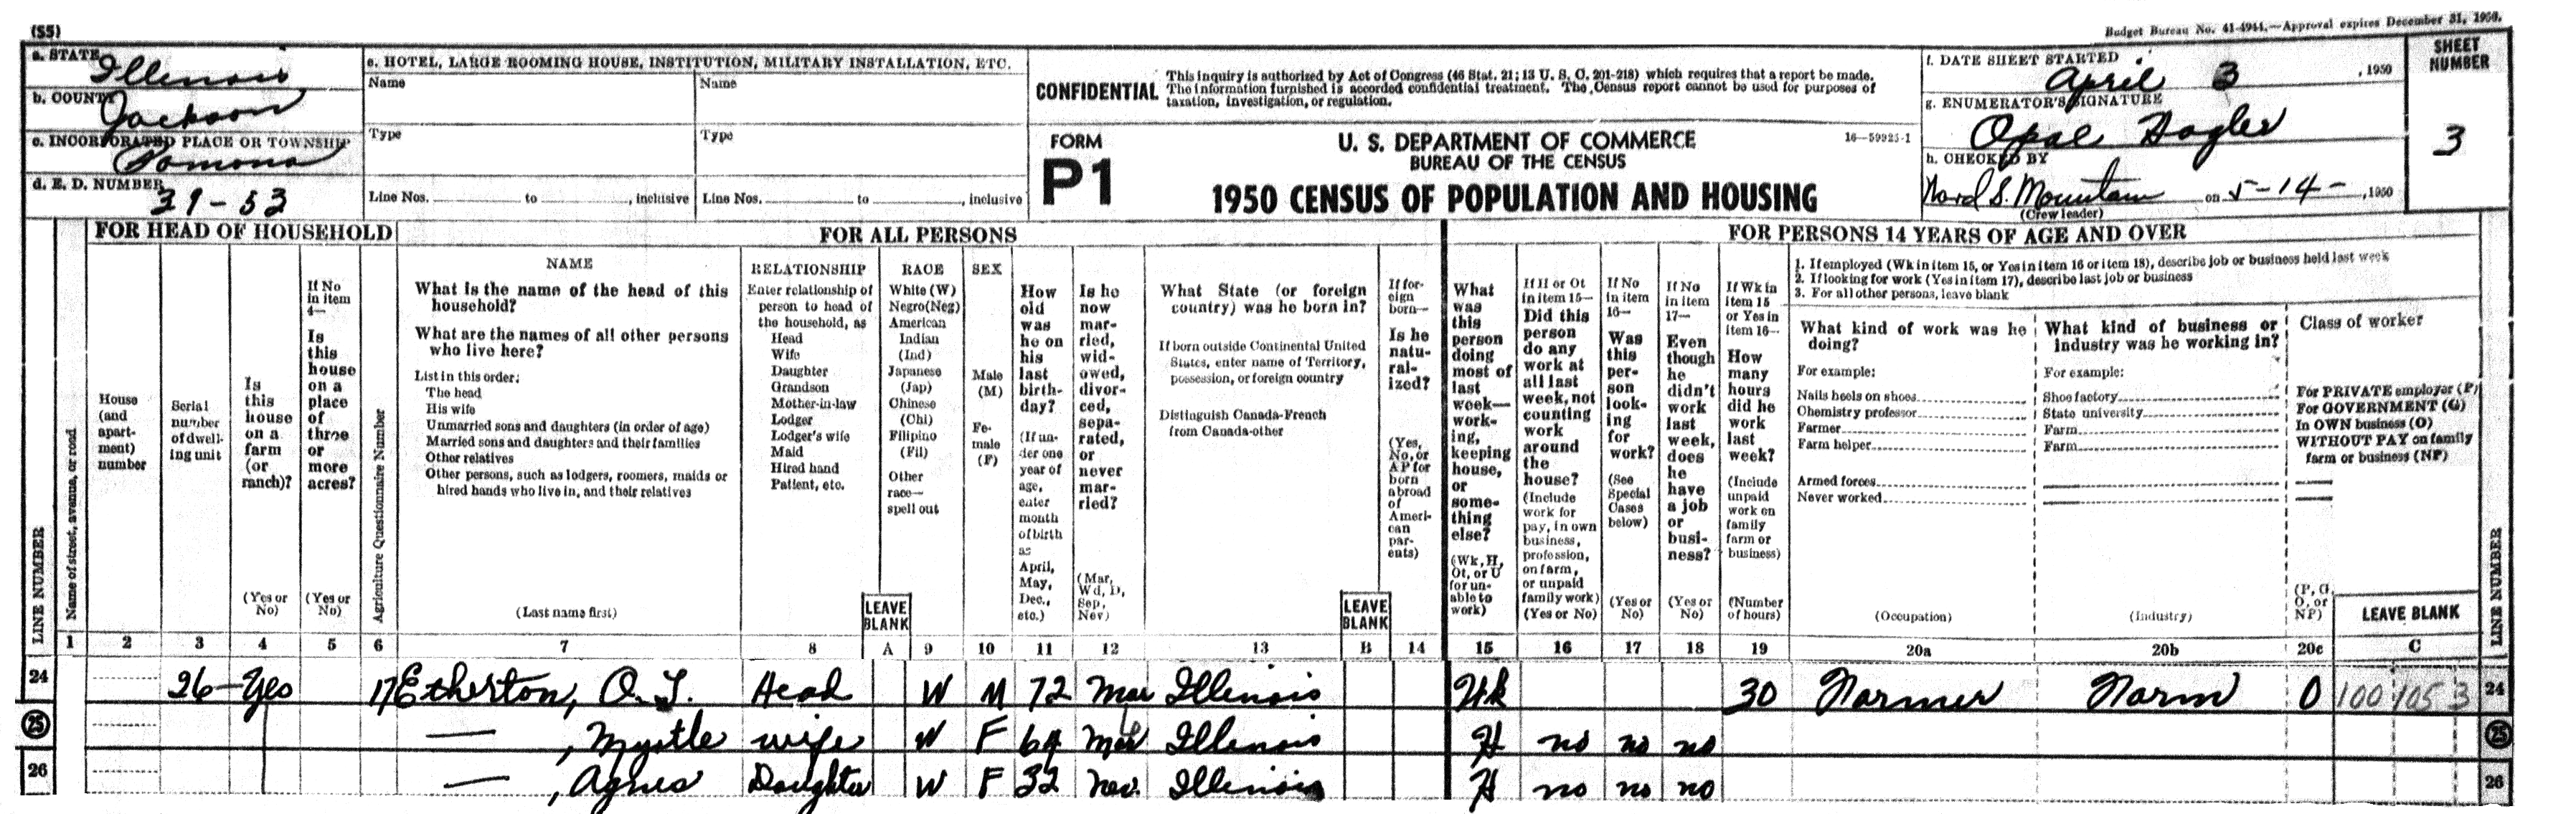 (55)
Budget Bureau No. 41-4944.—Approval expires December 31, 1950.
a. STATE Illinois
b. COUNTY Jackson
c. INCORPORATED PLACE OR TOWNSHIP Pomona
d. E. D. NUMBER 39-53
e. HOTEL, LARGE ROOMING HOUSE, INSTITUTION, MILITARY INSTALLATION, ETC.
Name Name
Type Type
Line Nos. to , inclusive Line Nos. to , inclusive
CONFIDENTIAL
This inquiry is authorized by Act of Congress (46 Stat. 21; 13 U. S. C. 201-218) which requires that a report be made.
The information furnished is accorded confidential treatment. The Census report cannot be used for purposes of
taxation, investigation, or regulation.
FORM
P1
U. S. DEPARTMENT OF COMMERCE
BUREAU OF THE CENSUS
1950 CENSUS OF POPULATION AND HOUSING
16—59925-1
f. DATE SHEET STARTED
April 3 , 1950
g. ENUMERATOR'S SIGNATURE
Opal Hagler
h. CHECKED BY
S. Mountain on 5-14- , 1950
(Crew leader)
SHEET
NUMBER
3
FOR HEAD OF HOUSEHOLD
FOR ALL PERSONS
FOR PERSONS 14 YEARS OF AGE AND OVER
LINE NUMBER
Name of street, avenue, or road
House
(and
apart-
ment)
number
Serial
number
of dwell-
ing unit
Is
this
house
on a
farm
(or
ranch)?
(Yes or
No)
If No
in item
4—
Is
this
house
on a
place
of
three
or
more
acres?
(Yes or
No)
Agriculture Questionnaire Number
NAME
What is the name of the head of this
household?
What are the names of all other persons
who live here?
List in this order:
The head
His wife
Unmarried sons and daughters (in order of age)
Married sons and daughters and their families
Other relatives
Other persons, such as lodgers, roomers, maids or
hired hands who live in, and their relatives
(Last name first)
RELATIONSHIP
Enter relationship of
person to head of
the household, as
Head
Wife
Daughter
Grandson
Mother-in-law
Lodger
Lodger's wife
Maid
Hired hand
Patient, etc.
LEAVE
BLANK
RACE
White (W)
Negro(Neg)
American
Indian
(Ind)
Japanese
(Jap)
Chinese
(Chi)
Filipino
(Fil)
Other
race—
spell out
SEX
Male
(M)
Fe-
male
(F)
How
old
was
he on
his
last
birth-
day?
(If un-
der one
year of
age,
enter
month
of birth
as
April,
May,
Dec.,
etc.)
Is he
now
mar-
ried,
wid-
owed,
divor-
ced,
sepa-
rated,
or
never
mar-
ried?
(Mar,
Wd, D,
Sep,
Nev)
What State (or foreign
country) was he born in?
If born outside Continental United
States, enter name of Territory,
possession, or foreign country
Distinguish Canada-French
from Canada-other
LEAVE
BLANK
If for-
eign
born—
Is he
natu-
ral-
ized?
(Yes,
No, or
AP for
born
abroad
of
Ameri-
can
par-
ents)
What
was
this
person
doing
most of
last
week—
work-
ing,
keeping
house,
or
some-
thing
else?
(Wk, H,
Ot, or U
for un-
able to
work)
If H or Ot
in item 15—
Did this
person
do any
work at
all last
week, not
counting
work
around
the
house?
(Include
work for
pay, in own
business,
profession,
on farm,
or unpaid
family work)
(Yes or No)
If No
in item
16—
Was
this
per-
son
look-
ing
for
work?
(See
Special
Cases
below)
(Yes or
No)
If No
in item
17—
Even
though
he
didn't
work
last
week,
does
he
have
a job
or
busi-
ness?
(Yes or
No)
If Wk in
item 15
or Yes in
item 16—
How
many
hours
did he
work
last
week?
(Include
unpaid
work on
family
farm or
business)
(Number
of hours)
1. If employed (Wk in item 15, or Yes in item 16 or item 18), describe job or business held last week
2. If looking for work (Yes in item 17), describe last job or business
3. For all other persons, leave blank
What kind of work was he
doing?
For example:
Nails heels on shoes
Chemistry professor
Farmer
Farm helper
Armed forces
Never worked
(Occupation)
What kind of business or
industry was he working in?
For example:
Shoe factory
State university
Farm
Farm
(Industry)
Class of worker
For PRIVATE employer (P)
For GOVERNMENT (G)
In OWN business (O)
WITHOUT PAY on family
farm or business (NP)
(P, G,
O, or
NP)
LEAVE BLANK
LINE NUMBER
1 2 3 4 5 6 7 8 A 9 10 11 12 13 B 14 15 16 17 18 19 20a 20b 20c C
24 26 Yes 17 Etherton, O. T. Head W M 72 Mar Illinois Wk 30 Farmer Farm O 100 105 3 24
25 — , Myrtle wife W F 64 Mar Illinois H no no no 25
26 — , Agnes Daughter W F 32 Nev. Illinois H no no no 26